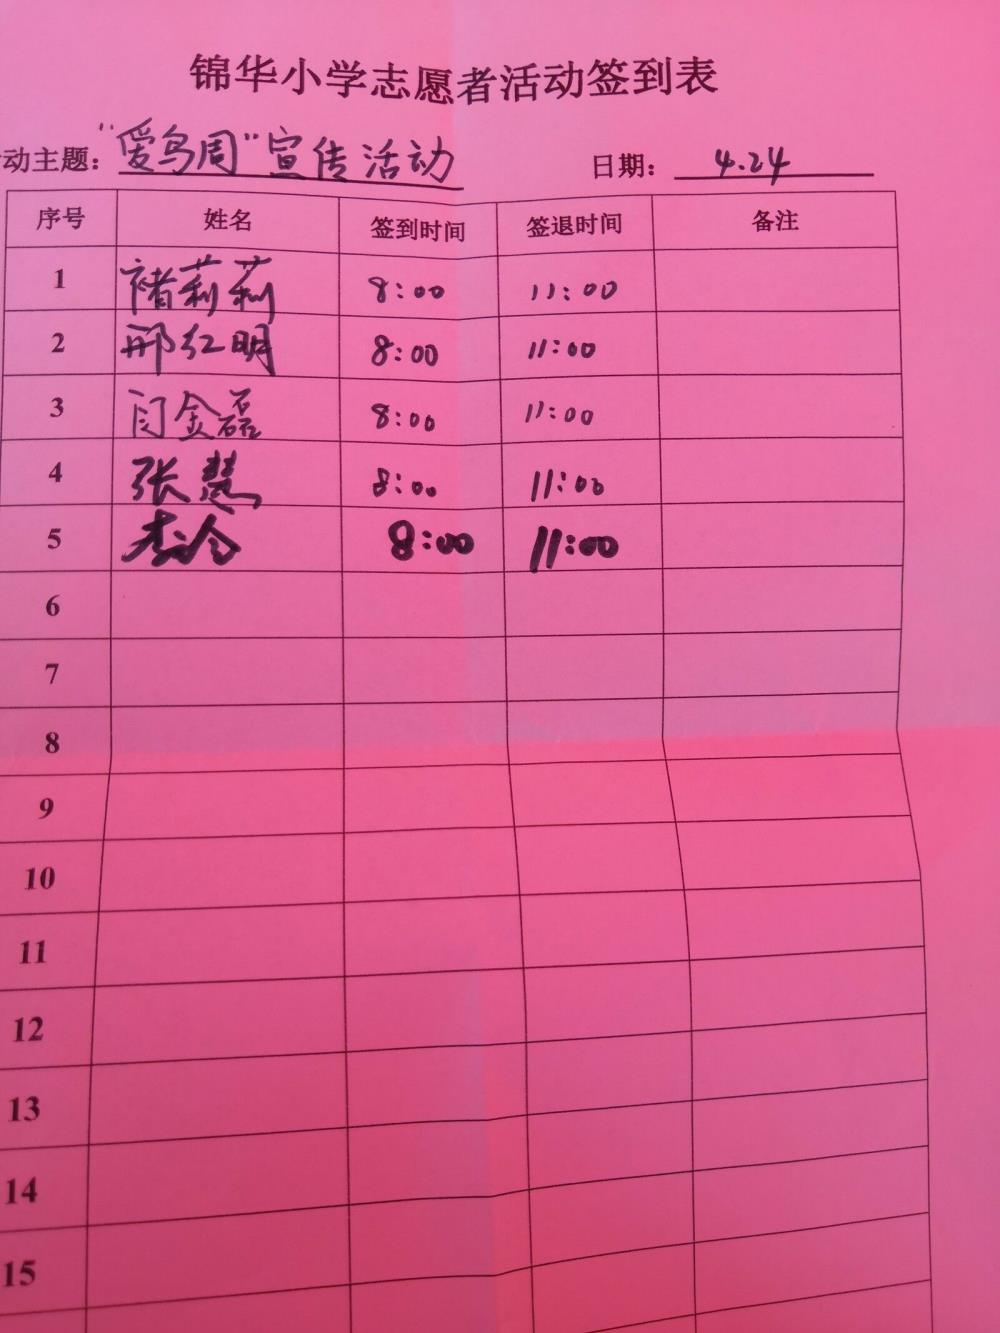 锦华小学志愿者活动签到表
动主题：“爱鸟周”宣传活动 日期：4.24
序号 姓名 签到时间 签退时间 备注
1 褚莉莉 8:00 11:00
2 邢红明 8:00 11:00
3 闫金磊 8:00 11:00
4 张慧 8:00 11:00
5 8:00 11:00
6
7
8
9
10
11
12
13
14
15